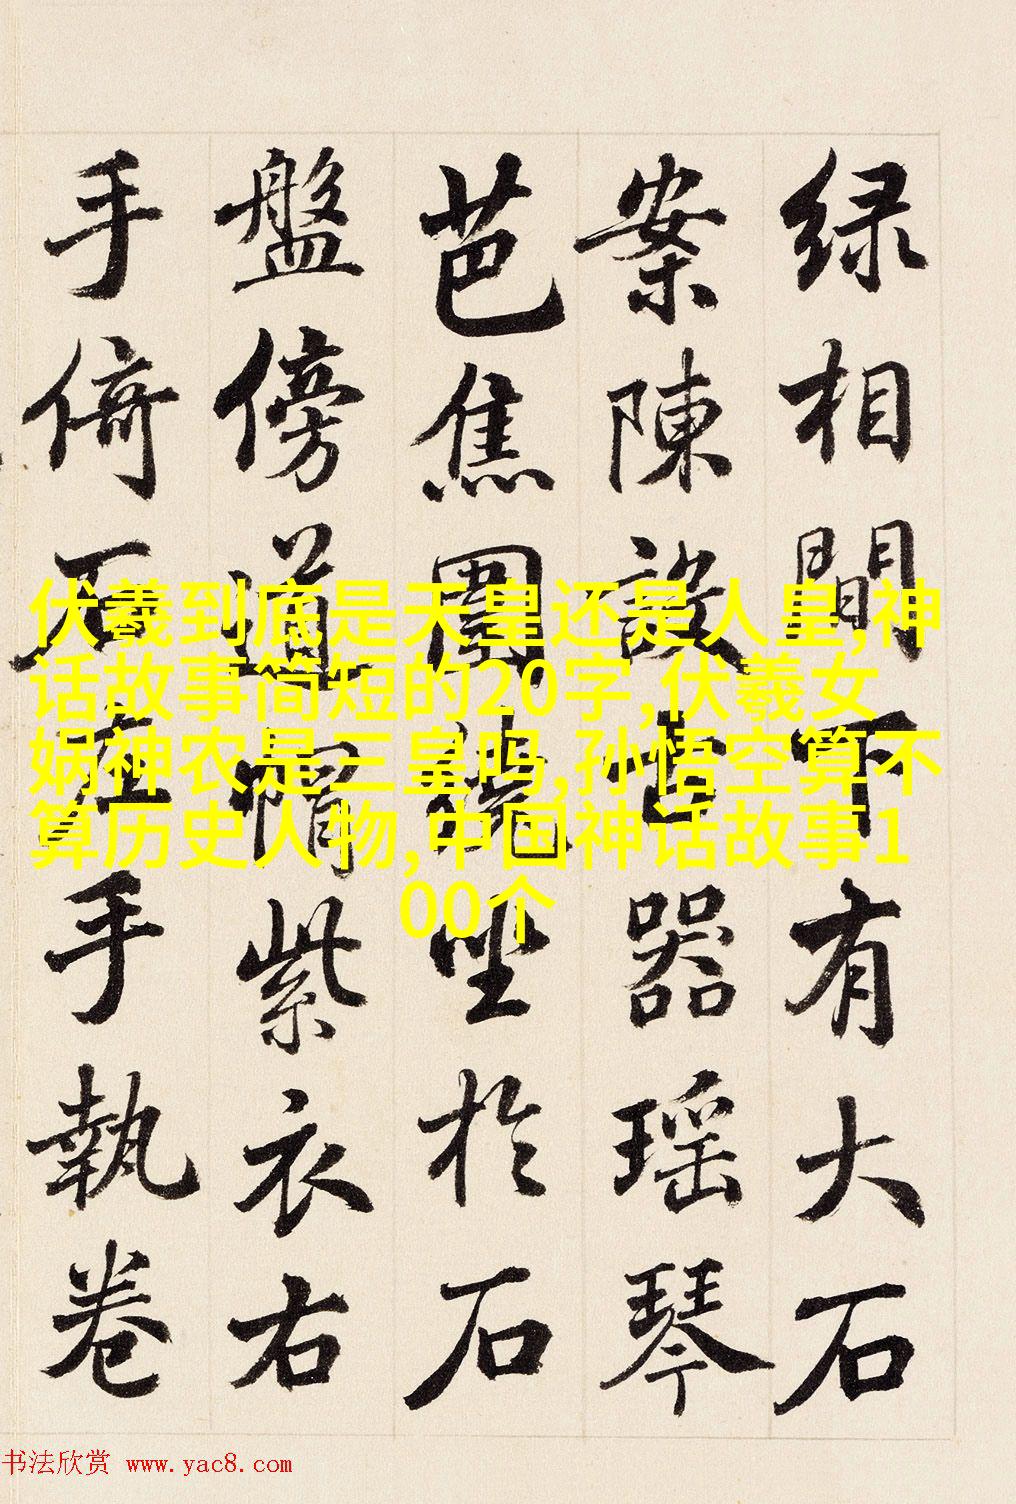 绿相間下有大石
案陳設古器瑶琴
芭焦圍繞坐於石
盤傍道帽紫衣右
手倚石左手執卷
伏羲到底是天皇还是人皇,神
话故事简短的20字,伏羲女
娲神农是三皇吗,孙悟空算不
算历史人物,中国神话故事1
00个
书法欣赏 www.yac8.com